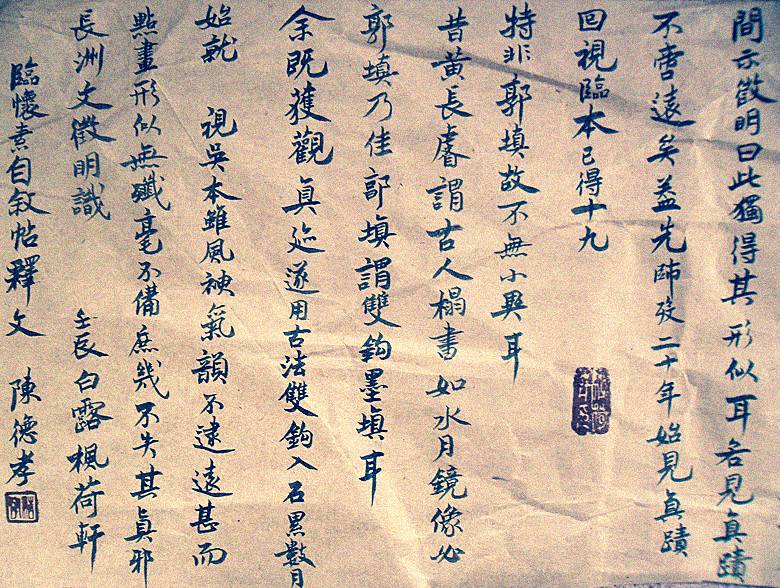 間示徵明曰此獨得其形似耳若見真蹟
不啻遠矣蓋先師歿二十年始見真蹟
回視臨本已得十九
特非郭填故不無小異耳
昔黃長睿謂古人榻書如水月鏡像必
郭填乃佳郭填謂雙鈎墨填耳
余既獲觀真迹遂用古法雙鈎入石累數月
始就 視吳本雖風神氣韻不逮遠甚而
點畫形似無殲毫不備庶幾不失其真邪
長洲文徵明識 壬辰白露楓荷軒
臨懷素自敘帖釋文 陳德孝